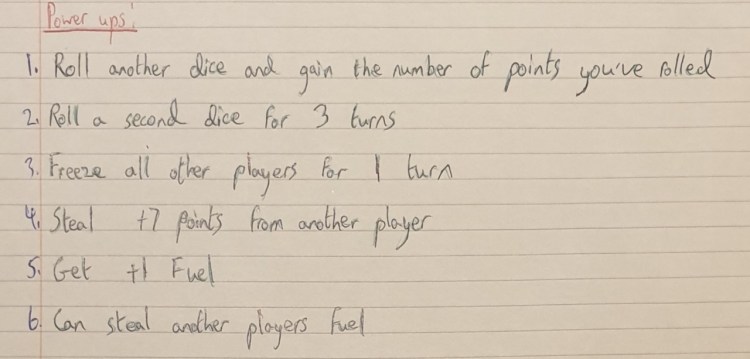 Power ups:
1. Roll another dice and gain the number of points you've rolled
2. Roll a second dice for 3 turns
3. Freeze all other players for 1 turn
4. Steal +7 points from another player
5. Get +1 Fuel
6. Can steal another players fuel